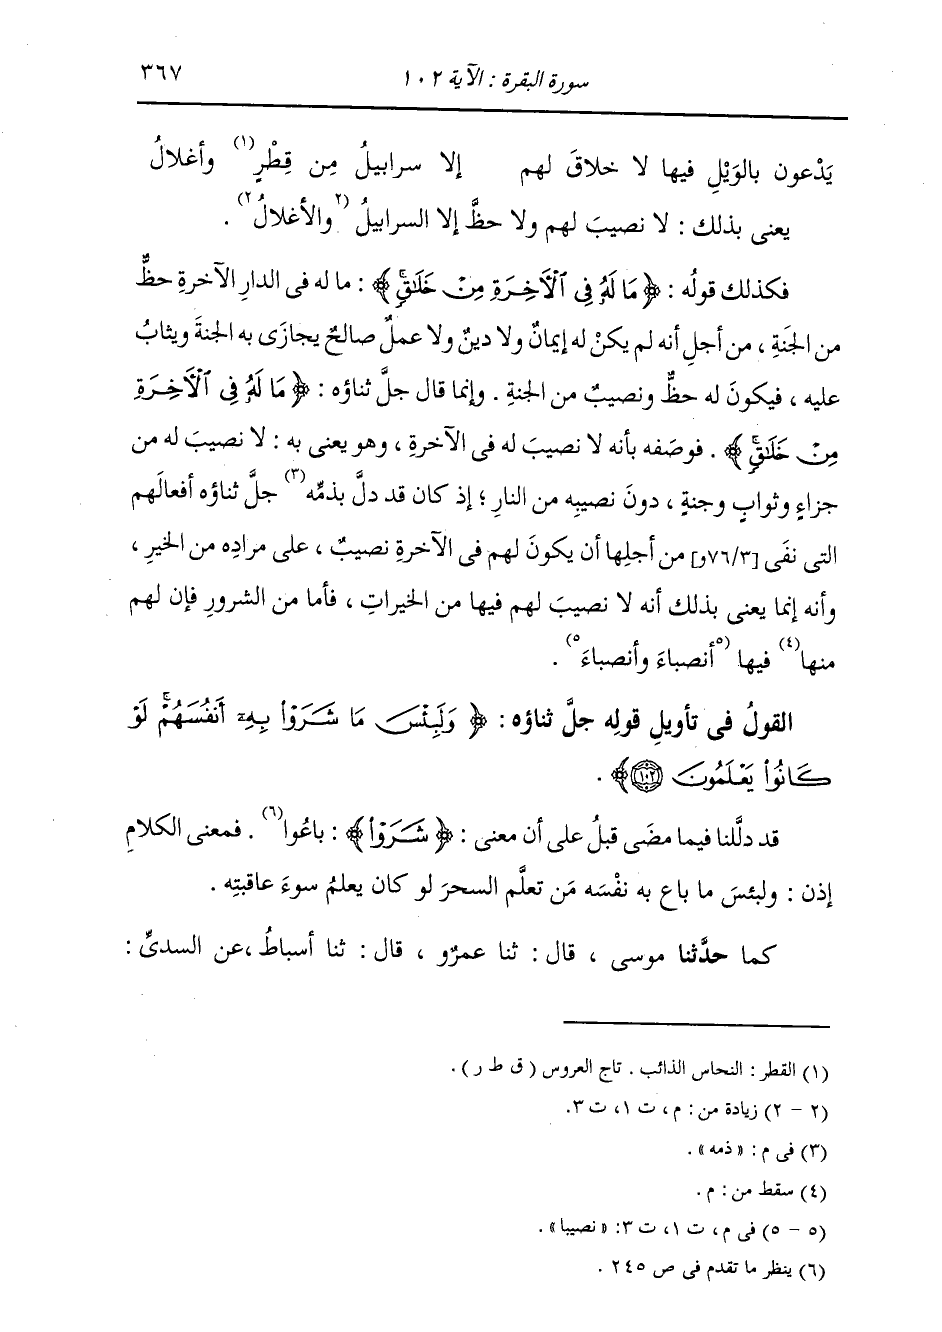 سورة البقرة : الآية ١٠٢
٣٦٧
يَدْعون بالوَيْلِ فيها لا خلاقَ لهم إلا سرابيلُ مِن قِطْرٍ(١) وأغلالُ
يعنى بذلك : لا نصيبَ لهم ولا حظَّ إلا السرابيلُ (٢والأغلالُ٢) .
فكذلك قولُه : ﴿ مَا لَهُۥ فِى ٱلْأَخِرَةِ مِنْ خَلَٰقٍۚ ﴾ : ما له فى الدارِ الآخرةِ حظٌّ
من الجنَةِ ، من أجلِ أنه لم يكنْ له إيمانٌ ولا دينٌ ولا عملٌ صالحٌ يجازَى به الجنةَ ويثابُ
عليه ، فيكونَ له حظٌّ ونصيبٌ من الجنةِ . وإنما قال جلَّ ثناؤه : ﴿ مَا لَهُۥ فِى ٱلْأَخِرَةِ
مِنْ خَلَٰقٍۚ ﴾ . فوصَفه بأنه لا نصيبَ له فى الآخرةِ ، وهو يعنى به : لا نصيبَ له من
جزاءٍ وثوابٍ وجنةٍ ، دونَ نصيبِه من النارِ ؛ إذ كان قد دلَّ بذمِّه(٣) جلَّ ثناؤه أفعالَهم
التى نفَى [٧٦/٣و] من أجلِها أن يكونَ لهم فى الآخرةِ نصيبٌ ، على مرادِه من الخيرِ ،
وأنه إنما يعنى بذلك أنه لا نصيبَ لهم فيها من الخيراتِ ، فأما من الشرورِ فإن لهم
منها(٤) فيها (٥أنصباءَ وأنصباءَ٥) .
القولُ فى تأويلِ قولِه جلَّ ثناؤه : ﴿ وَلَبِئْسَ مَا شَرَوْاْ بِهِۦٓ أَنفُسَهُمْۚ لَوْ
كَانُواْ يَعْلَمُونَ ١٠٢ ﴾ .
قد دلَّلنا فيما مضَى قبلُ على أن معنى : ﴿ شَرَوْاْ ﴾ : باعُوا(٦) . فمعنى الكلامِ
إذن : ولبئسَ ما باع به نفْسَه مَن تعلَّم السحرَ لو كان يعلمُ سوءَ عاقبتِه .
كما حدَّثنا موسى ، قال : ثنا عمرٌو ، قال : ثنا أسباطُ ، عن السدىِّ :
(١) القطر : النحاس الذائب . تاج العروس ( ق ط ر ) .
(٢ - ٢) زيادة من : م ، ت ١ ، ت ٣ .
(٣) فى م : « ذمه » .
(٤) سقط من : م .
(٥ - ٥) فى م ، ت ١ ، ت ٣ : « نصيبا » .
(٦) ينظر ما تقدم فى ص ٢٤٥ .